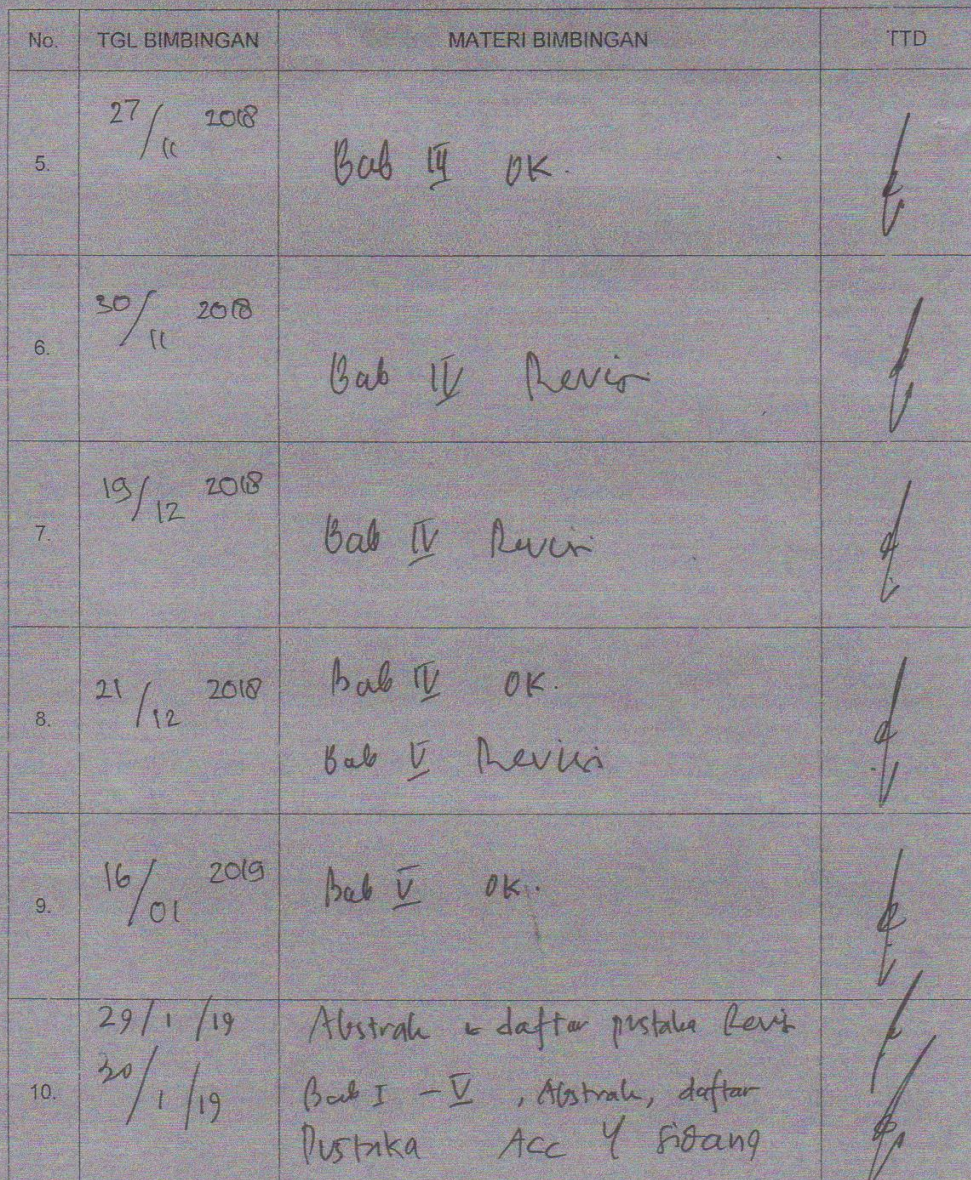 No. TGL BIMBINGAN MATERI BIMBINGAN TTD
5. 27/11 2018 Bab III OK.
6. 30/11 2018 Bab IV Revisi
7. 19/12 2018 Bab IV Revisi
8. 21/12 2018 Bab IV OK.
Bab V Revisi
9. 16/01 2019 Bab V OK.
29/1/19 Abstrak & daftar pustaka Revisi
10. 30/1/19 Bab I - V, Abstrak, daftar
Pustaka Acc Y Sidang